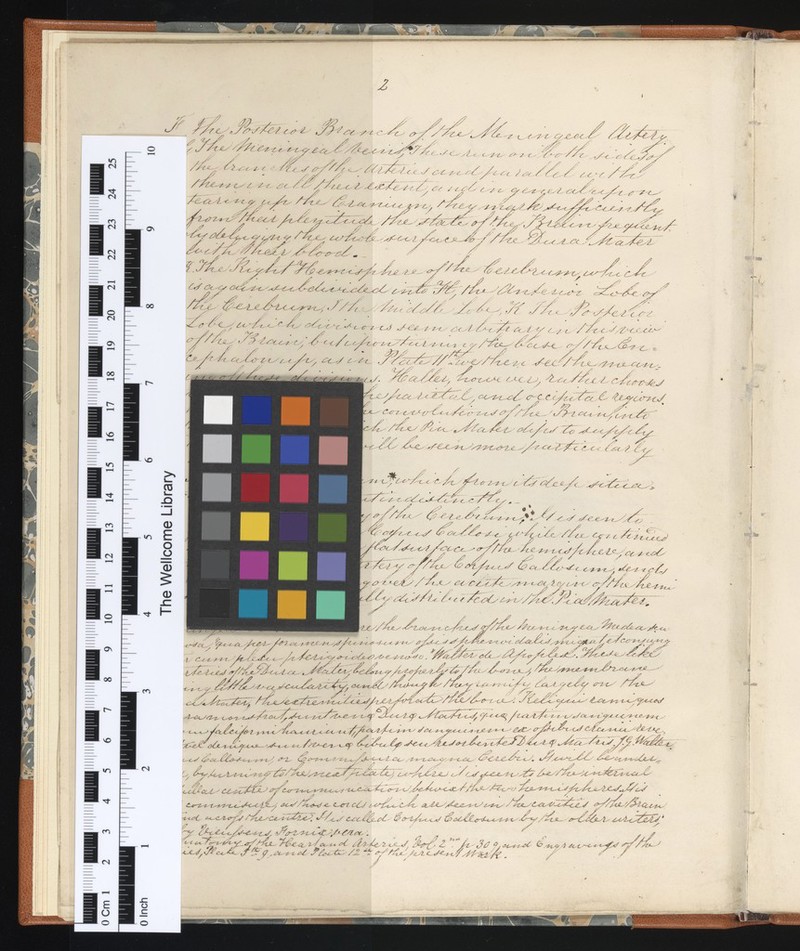 2
F The Posterior Branch of the Meningeal Artery.
The Meningeal Veins, These run on both sides of
the branches of the Arteries and parallel with
them in all their extent, and in general upon
tearing up the Cranium, they mark sufficiently
from their plenitude the state of the Brain frequent
ly deluging the whole surface of the Dura Mater
with their blood.
The Right Hemisphere of the Cerebrum, which
is again subdivided into H, the Anterior Lobe of
the Cerebrum, I the Middle Lobe, K the Posterior
Lobe, which divisions seem arbitrary in this view
of the Brain, but upon turning the base of the En-
cephalon up, as in Plate 11th we then see the mean-
of these divisions. Haller, however, rather chooks
the parietal, and occipital regions.
convolutions of the Brain, into
ch the Pia Mater dips to supply
will be seen more particularly
m,* which from its deep situa-
indistinctly.
of the Cerebrum, It is seen to
Corpus Callosi while the continued
flat surface of the hemisphere, and
rtery of the Corpus Callosum, sends
over the acute margin of the hemi
lly distributed in the Pia Mater.
re the branches of the Meningea Media
osa, quæ per foramen spinosum ossis sphenoidalis
cum plexu pterigoideo venoso. Walter de Apoplex. These like
teries of the Dura Mater belong properly to the bone, the membrane
ing little vascularity, and though they ramify largely on the
a Mater, the extremities perforate the bone. Reliqui rami quos
sunt venæ Duræ Matris, quæ partim sanguinem
falciformi hauriunt, partim sanguinem ex ossibus cranii
denique sunt venæ bibulæ seu Resorbentes Duræ Matris. J.G. Walter.
us Callosum, or Commissura magna Cerebri. It will be under-
, by turning to the next plate, where it is seen to be the internal
ular centre of communication betwixt the two hemispheres. It is
commisure, as those cords which are seen in the cavities of the Brain
nd across the centre. It is called Corpus Callosum by the older writers
by Vieussens, Fornix vera.
natomy of the Heart and Arteries, Vol. 2nd p. 309, and Engravings of the
ies, Plate 5th g. and Plate 12th of the present Work.
The Wellcome Library
0 Cm 1 2 3 4 5 6 7 8 9 10 11 12 13 14 15 16 17 18 19 20 21 22 23 24 25
0 Inch 1 2 3 4 5 6 7 8 9 10